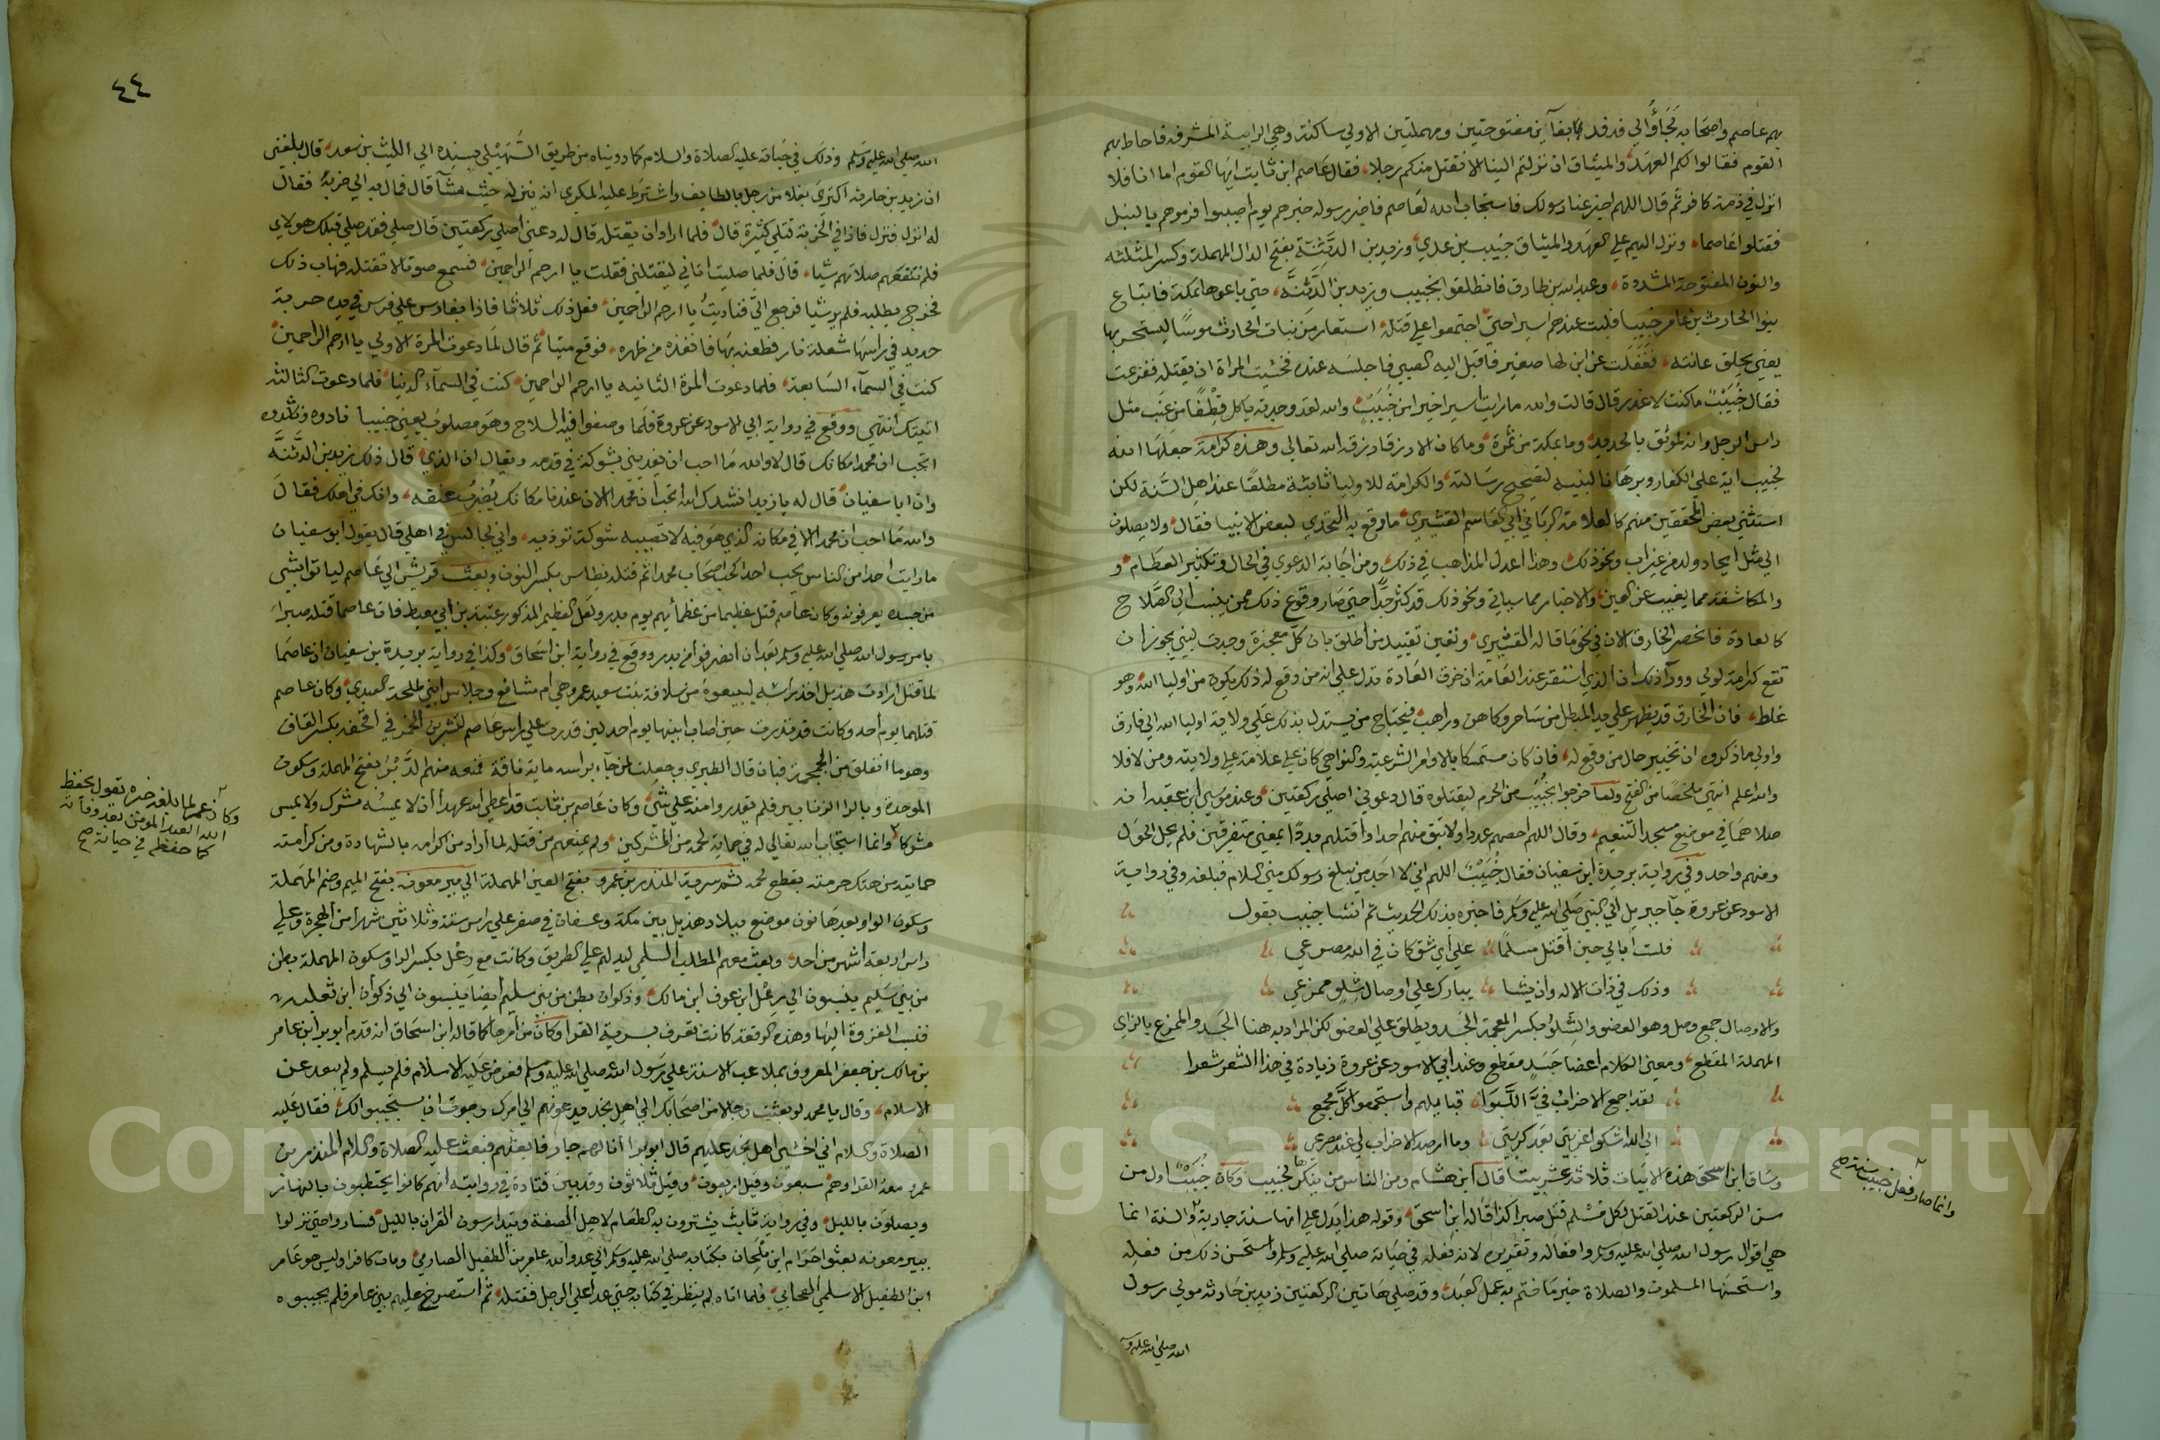 بهم عاصم واصحابه لجأوا الي فدفد بفاءين مفتوحتين ومهملتين الاولي ساكنة وهي الرابية المشرفة فاحاط بهم
القوم فقالوا لكم العهد والميثاق ان نزلتم الينا الا نقتل منكم رجلا فقال عاصم ابن ثابت ايها القوم اما انا فلا
انزل في ذمة كافر ثم قال اللهم اخبر عنا رسولك فاستجاب الله لعاصم فاخبر رسوله خبرهم يوم اصيبوا فرموهم بالنبل
فقتلوا عاصما ونزل اليهم علي العهد والميثاق خبيب بن عدي وزيد بن الدثنة بفتح الدال المهملة وكسر المثلثه
والنون المفتوحة المشددة وعبد الله بن طارق فانطلقوا بخبيب وزيد بن الدثنة حتي باعوهما بمكة فابتاع
بنوا الحارث بن عامر خبيبا فلبث عندهم اسيرا حتي اجتمعوا علي قتله استعار من بنات الحارث موسا ليستحد بها
يعني يحلق عانته فغفلت عن ابن لها صغير فاقبل اليه الصبي فاجلسه عنده فخشيت المراة ان يقتله ففزعت
فقال خبيب ما كنت لاغدر قال قالت والله ما رايت اسيرا خيرا من خبيب والله لقد وجدته ياكل قطفا من عنب مثل
راس الرجل وانه لموثق بالحديد وما بمكة من ثمرة وما كان الا رزقا رزقه الله تعالي وهذه كرامة جعلها الله
لخبيب اية علي الكفار وبرهانا لنبيه لتصحيح رسالته والكرامة للاوليا ثابتة مطلقا عند اهل السنة لكن
استثني بعض المحققين منهم كالعلامة الرباني ابي القاسم القشيري ما وقع به التحدي لبعض الانبيا فقال ولا يصلون
الي مثل ايجاد ولد من غير اب ونحو ذلك وهذا اعدل المذاهب في ذلك ومن اجابة الدعوي في الحال وتكثير الطعام و
والمكاشفة مما يغيب عن العين والاخبار مما سياتي ونحو ذلك قد كثر جدا حتي صار وقوع ذلك ممن ينسب الي الصلاح
كالعادة فانحصر الخارق الان في نحو ما قاله القشيري وتعين تقييد من اطلق بان كل معجزة وجدت لنبي يجوز ان
تقع كرامة لولي وورآ ذلك ان الذي استقر عند العامة ان خرق العادة تدل علي انه من وقع له ذلك يكون من اوليا الله وهو
غلط فان الخارق قد يظهر علي يد المبطل من ساحر وكاهن وراهب فيحتاج من يستدل بذلك علي ولاية اوليا الله الي فارق
واولي ما ذكروه ان يختبر حال من وقع له فان كان متمسكا بالاوامر الشرعية والنواهي كان علي علامة علي ولايته ومن لا فلا
والله اعلم انتهي ملخصا من الفتح ولما خرجوا بخبيب من الحرم ليقتلوه قال دعوني اصلي ركعتين وعند موسي ابن عقبة انه
صلاهما في موضع مسجد التنعيم وقال اللهم احصهم عددا ولا تبق منهم احدا واقتلهم بددا يعني متفرقين فلم يحل الحول
ومنهم واحد وفي رواية بريدة ابن سفيان فقال خبيب اللهم اني لا اجد من يبلغ رسولك مني السلام فبلغه وفي رواية
الاسود عن عروة جآ جبريل الي النبي صلي الله عليه وسلم فاخبره بذلك الحديث ثم انشا خبيب يقول
فلست ابالي حين اقتل مسلما علي اي شق كان في الله مصرعي
وذلك في ذات الاله وان يشا يبارك علي اوصال شلو ممزعي
والاوصال جمع وصل وهو العضو والشلو بكسر المعجمة الجسد ويطلق علي العضو لكن المراد به هنا الجسد والممزع بالزاي
المهملة المقطع ومعني الكلام اعضا جسد مقطع وعند ابي الاسود عن عروة زيادة في هذا الشعر شعرا
لقد اجمع الاحزاب في والبوا قبايلهم واستجمعوا كل مجمع
الي الله اشكوا غربتي بعد كربتي وما ارصد الاحزاب لي عند مصرعي
وساق ابن اسحق هذه الابيات ثلاثة عشر بيتا قال ابن هشام ومن الناس من ينكرها لخبيب وكان خبيب اول من
سن الركعتين عند القتل لكل مسلم قتل صبرا كذا قاله ابن اسحق وقوله هذا يدل علي انها سنة جارية والسنة انما
هي اقوال رسول الله صلي الله عليه وسلم وافعاله وتقريره لانه فعله في حياته صلي الله عليه وسلم واستحسن ذلك من فعله
واستحسنها المسلمون والصلاة خير ما ختم به عمل العبد وقد صلي هاتين الركعتين زيد بن حارثة مولي رسول
الله صلي الله عليه و
وانما صار فعل خبيب سنة صح
٤٤
الله صلي الله عليه وسلم وذلك في حياته عليه الصلاة والسلام كما رويناه من طريق السهيلي بسنده الي الليث بن سعد قال بلغني
ان زيد بن حارثه اكتري بغلا من رجل بالطايف واشترط عليه المكري ان ينزله حيث شآ قال فمال به الي خربة فقال
له انزل فنزل فاذا في الخربة قتلي كثيرة قال فلما اراد ان يقتله قال له دعني اصلي ركعتين قال صلي فقد صلي قبلك هولاي
فلم تنفعهم صلاتهم شيا قال فلما صليت اتاني ليقتلني فقلت يا ارحم الراحمين فسمع صوتا لا تقتله فهاب ذلك
فخرج يطلبه فلم ير شيا فرجع الي فناديت يا ارحم الراحمين فعل ذلك ثلاثا فاذا بفارس علي فرس في يده حربة
حديد في راسها شعلة نار فطعنه بها فانفذه من ظهره فوقع ميتا ثم قال لما دعوت المرة الاولي يا ارحم الراحمين
كنت في السمآء السابعة فلما دعوت المرة الثانيه يا ارحم الراحمين كنت في السمآء الدنيا فلما دعوت الثالثة
اتيتك انتهي ووقع في رواية ابي الاسود عن عروة فلما وضعوا فيه السلاح وهو مصلوب يعني خبيبا نادوه وناشدوه
اتحب ان محمدا مكانك قال لا والله ما احب ان يفديني بشوكة في قدمه ويقال ان الذي قال ذلك زيد بن الدثنة
وان ابا سفيان قال له يا زيد انشدك الله اتحب ان محمد الان عندنا مكانك يضرب عنقه وانك في اهلك فقال
والله ما احب ان محمد الان في مكانه الذي هو فيه لا تصيبه شوكة توذيه واني لجالس في اهلي قال يقول ابو سفيان
ما رايت احدا من الناس يحب احدا كحب اصحاب محمد محمدا ثم قتله نسطاس بكسر النون وبعثت قريش الي عاصم لياتوا بشي
من جسده يعرفونه وكان عاصم قتل عظيما من عظمايهم يوم بدر ولعل العظيم المذكور عقبة بن ابي معيط فان عاصما قتله صبرا
بامر رسول الله صلي الله عليه وسلم بعد ان انصرفوا من بدر ووقع في رواية ابن اسحاق وكذا في رواية بريدة بن سفيان ان عاصما
لما قتل ارادت هذيل اخذ راسه ليبيعوه من سلافة بنت سعيد وهي ام مسافع وجلاس ابني طلحة العبدي وكان عاصم
قتلهما يوم احد وكانت قد نذرت حين اصاب ابنيها يوم احد لين قدرت علي راس عاصم لتشربن الخمر في قحفه بكسر القاف
وهو ما انفلق من الجمجمة فبان قال الطبري وجعلت لمن جآء براسه ماية ناقة فمنعه منهم الدبر بفتح المهملة وسكون
الموحدة وبالرا الزنابير فلم يقدروا منه علي شي وكان عاصم بن ثابت قد اعطي الله عهدا ان لا يمسه مشرك ولا يمس
مشركا وانما استجاب الله تعالي له في حماية لحمه من المشركين ولم يمنعهم من قتله لما اراد من اكرامه بالشهادة ومن كرامته
حمايته من هتك حرمته بقطع لحمه ثم سرية المنذر بن عمرو بفتح العين المهملة الي بير معونه بفتح الميم وضم المهملة
وسكون الواو بعدها نون موضع ببلاد هذيل بين مكة وعسفان في صفر علي راس ستة وثلاثين شهرا من الهجرة وعلي
راس اربعة اشهر من احد وبعث معهم المطلب السلمي ليدلهم علي الطريق وكانت مع رعل بكسر الرا وسكون المهملة بطن
من بني سليم ينسبون الي رعل ابن عوف ابن مالك وذكوان بطن من بني سليم ايضا ينسبون الي ذكوان ابن ثعلبة
فنسب الغزوة اليها وهذه الوقعة كانت تعرف بسرية القرا وكان من امرها كما قاله ابن اسحاق انه قدم ابو برا بن عامر
بن مالك بن جعفر المعروف بملاعب الاسنة علي رسول الله صلي الله عليه وسلم فعرض عليه الاسلام فلم يسلم ولم يبعد عن
الاسلام وقال يا محمد لو بعثت رجالا من اصحابك الي اهل نجد يدعونهم الي امرك رجوت ان يستجيبوا لك فقال عليه
الصلاة والسلام اني اخشي اهل نجد عليهم قال ابو برا انا لهم جار فابعثهم فبعث عليه الصلاة والسلام المنذر بن
عمرو معه القرا وهم سبعون وقيل اربعون وقيل ثلاثون وقد بين قتادة في روايته انهم كانوا يحتطبون بالنهار
ويصلون بالليل وفي رواية ثابت يشترون به الطعام لاهل الصفة ويتدارسون القران بالليل فساروا حتي نزلوا
ببير معونه بعثوا حرام ابن ملحان بكتابه صلي الله عليه وسلم الي عدو الله عامر بن الطفيل العامري ومات كافرا وليس هو عامر
ابن الطفيل الاسلمي الصحابي فلما اتاه لم ينظر في كتابه حتي عدا علي الرجل فقتله ثم استصرخ عليهم بني عامر فلم يجيبوه
وكان عمر لما بلغه خبره يقول يحفظ
الله العبد المؤمن بعد وفاته
كما حفظه في حياته صح
Copyright © King Saud University